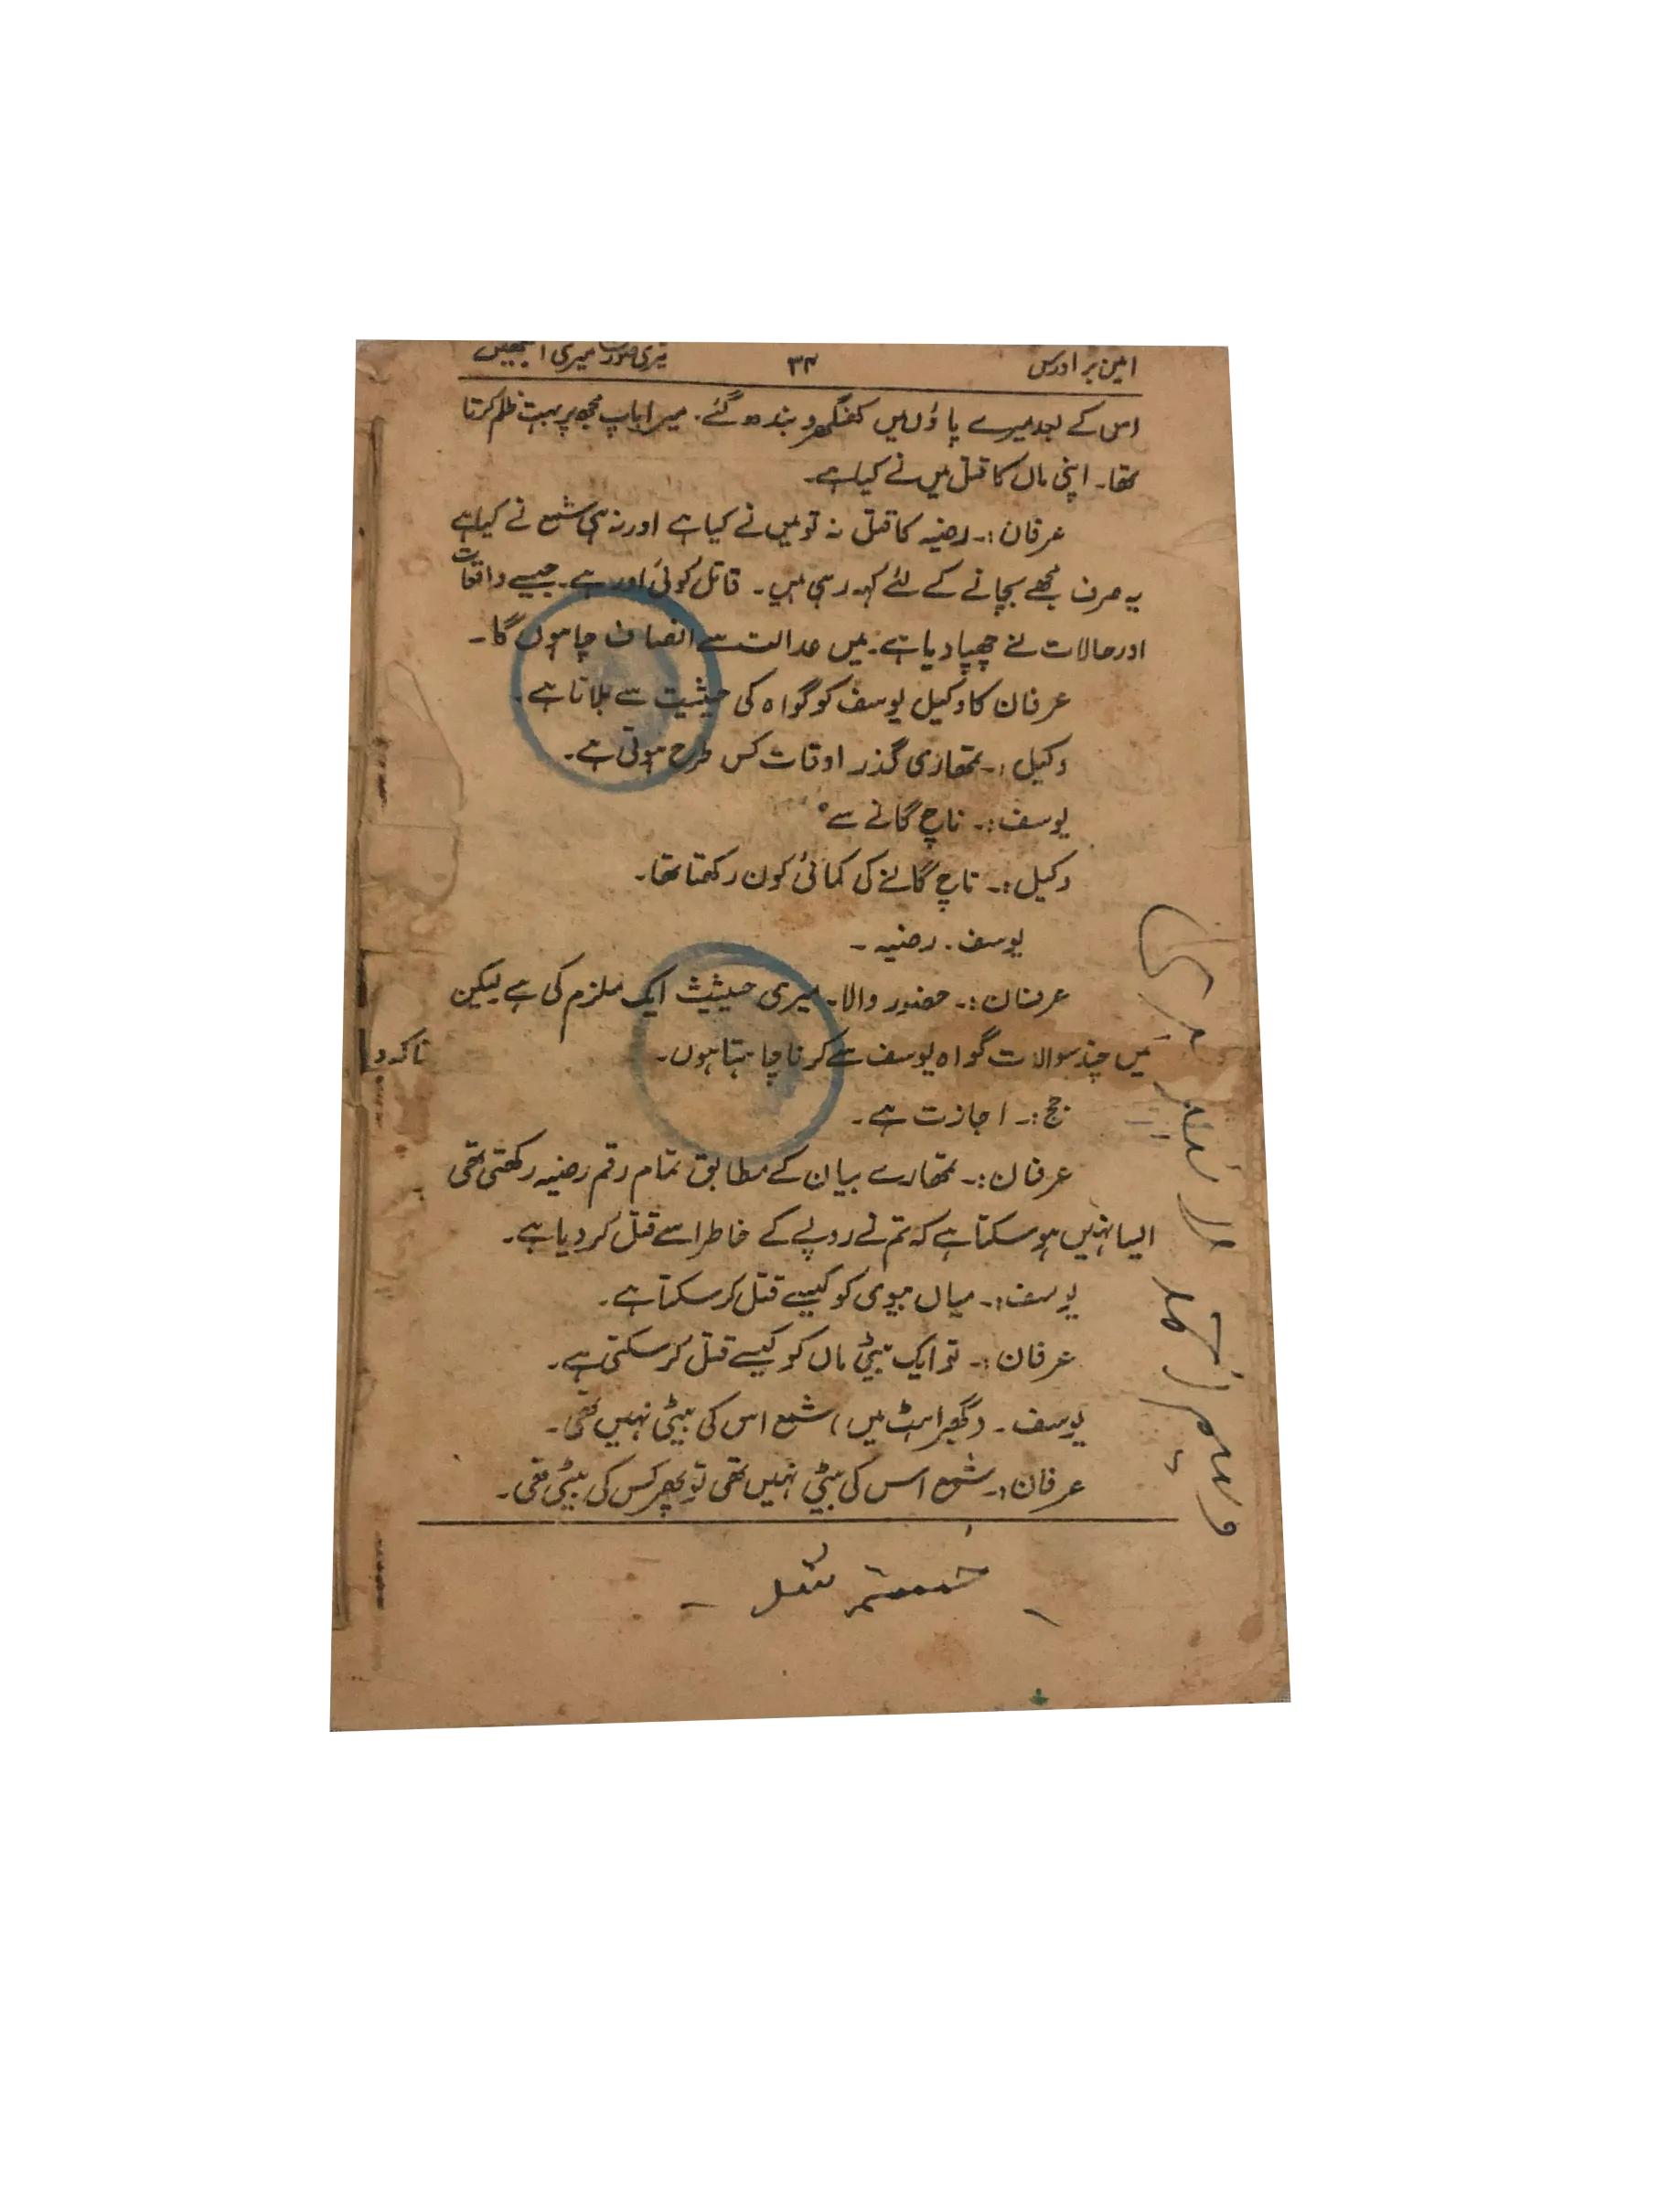 امین برادرس ۳۴ تیری صورت میری آنکھیں
اس کے بعد میرے پاؤں میں گھنگھرو بندھ گئے۔ میرا باپ مجھ پر بہت ظلم کرتا
تھا۔ اپنی ماں کا قتل میں نے کیا ہے۔
عرفان :۔ رضیہ کا قتل نہ تو میں نے کیا ہے اور نہ ہی شمع نے کیا ہے
یہ صرف مجھے بچانے کے لئے کہہ رہی ہیں۔ قاتل کوئی اور ہے۔ جیسے واقعات
اور حالات نے چھپا دیا ہے۔ میں عدالت سے انصاف چاہوں گا۔
عرفان کا وکیل یوسف کو گواہ کی حیثیت سے بلاتا ہے۔
وکیل :۔ تمھاری گذر اوقات کس طرح ہوتی ہے۔
یوسف :۔ ناچ گانے سے
وکیل :۔ ناچ گانے کی کمائی کون رکھتا تھا۔
یوسف۔ رضیہ ۔
عرفان :۔ حضور والا۔ میری حیثیث ایک ملزم کی ہے لیکن
میں چند سوالات گواہ یوسف سے کرنا چاہتا ہوں۔
جج :۔ اجازت ہے۔
عرفان :۔ تمھارے بیان کے مطابق تمام رقم رضیہ رکھتی تھی
ایسا نہیں ہو سکتا ہے کہ تم نے روپے کے خاطر اسے قتل کر دیا ہے۔
یوسف :۔ میاں بیوی کو کیسے قتل کر سکتا ہے۔
عرفان :۔ تو ایک بیٹی ماں کو کیسے قتل کر سکتی ہے۔
یوسف۔ (گھبراہٹ میں) شمع اس کی بیٹی نہیں تھی۔
عرفان :۔ شمع اس کی بیٹی نہیں تھی تو پھر کس کی بیٹی تھی۔